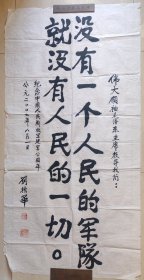 伟大领袖毛泽东主席教导我们：
没有一个人民的军队
就没有人民的一切。
纪念中国人民解放军建军八十周年
公元二〇〇七年八月一日